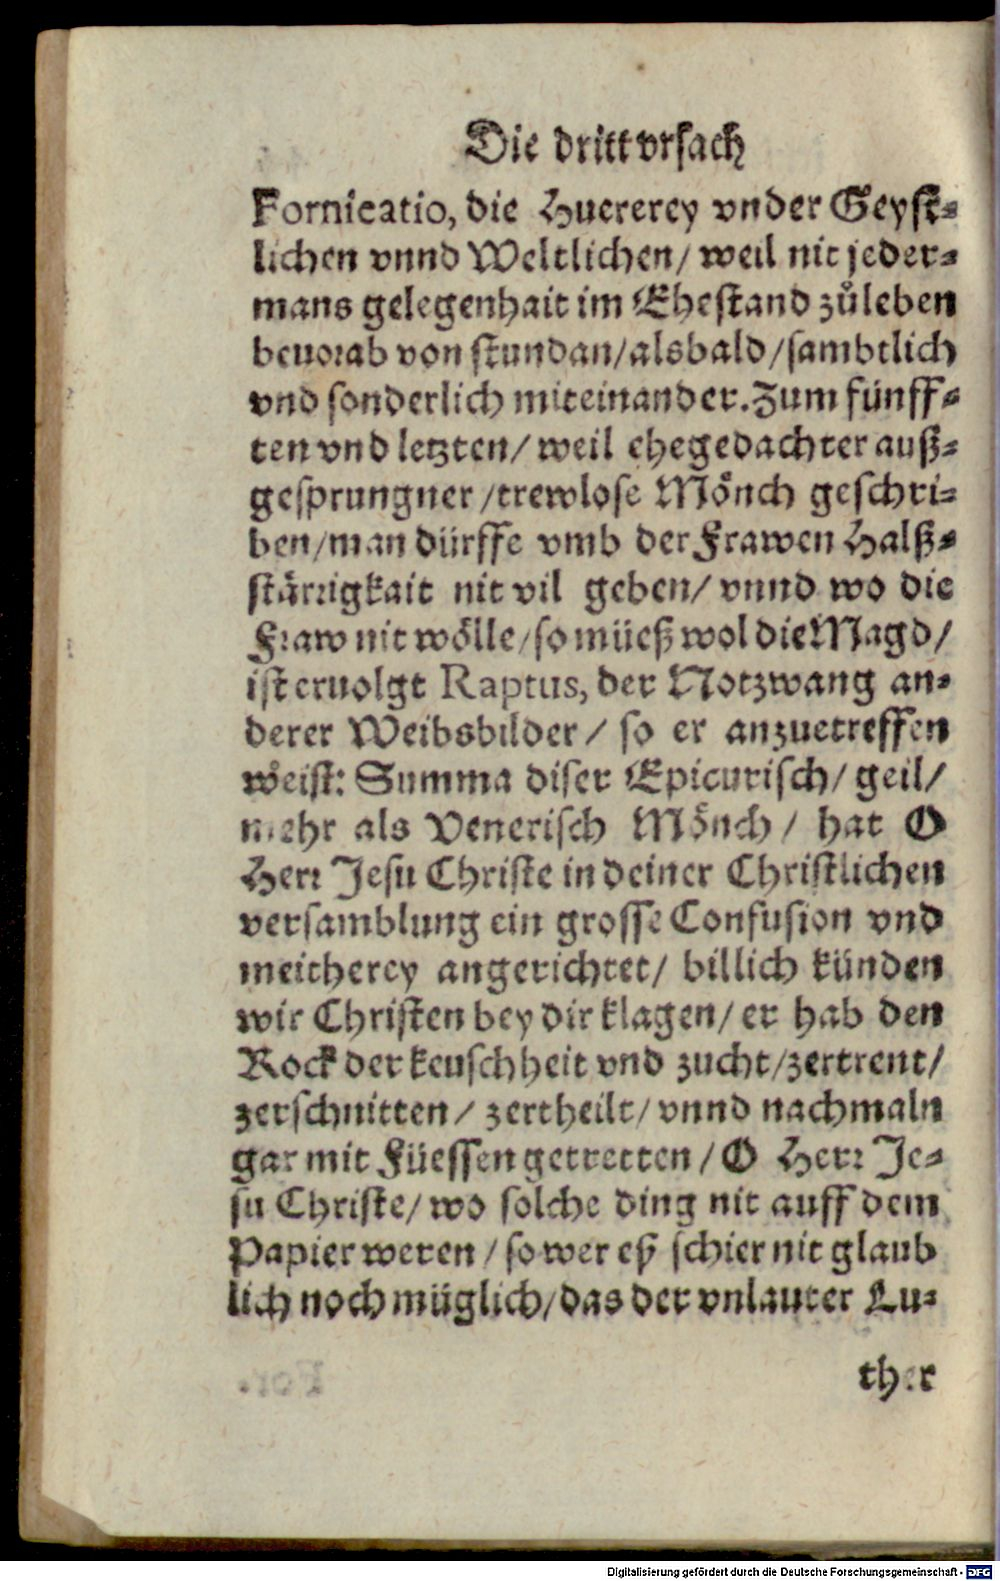 Die dritt vrsach
Fornicatio, die Huererey vnder Geyst-
lichen vnnd Weltlichen/ weil nit jeder-
mans gelegenhait im Ehestand zůleben
beuorab von stundan/alsbald/sambtlich
vnd sonderlich miteinander. Zum fünff-
ten vnd letzten/ weil ehegedachter auß-
gesprungner/trewlose Mönch geschri-
ben/man dürffe vmb der Frawen Halß-
stärrigkait nit vil geben/ vnnd wo die
Fraw nit wölle/so müeß wol die Magd/
ist eruolgt Raptus, der Notzwang an-
derer Weibsbilder/ so er anzuetreffen
weist: Summa diser Epicurisch/ geil/
mehr als Venerisch Mönch/ hat O
Herr Jesu Christe in deiner Christlichen
versamblung ein grosse Confusion vnd
meitherey angerichtet/ billich künden
wir Christen bey dir klagen/ er hab den
Rock der keuschheit vnd zucht/zertrent/
zerschnitten/ zertheilt/ vnnd nachmaln
gar mit Füessen getretten/ O Herr Je-
su Christe/ wo solche ding nit auff dem
Papier weren/ so wer eß schier nit glaub
lich noch müglich/das der vnlauter Lu-
ther
Digitalisierung gefördert durch die Deutsche Forschungsgemeinschaft - DFG